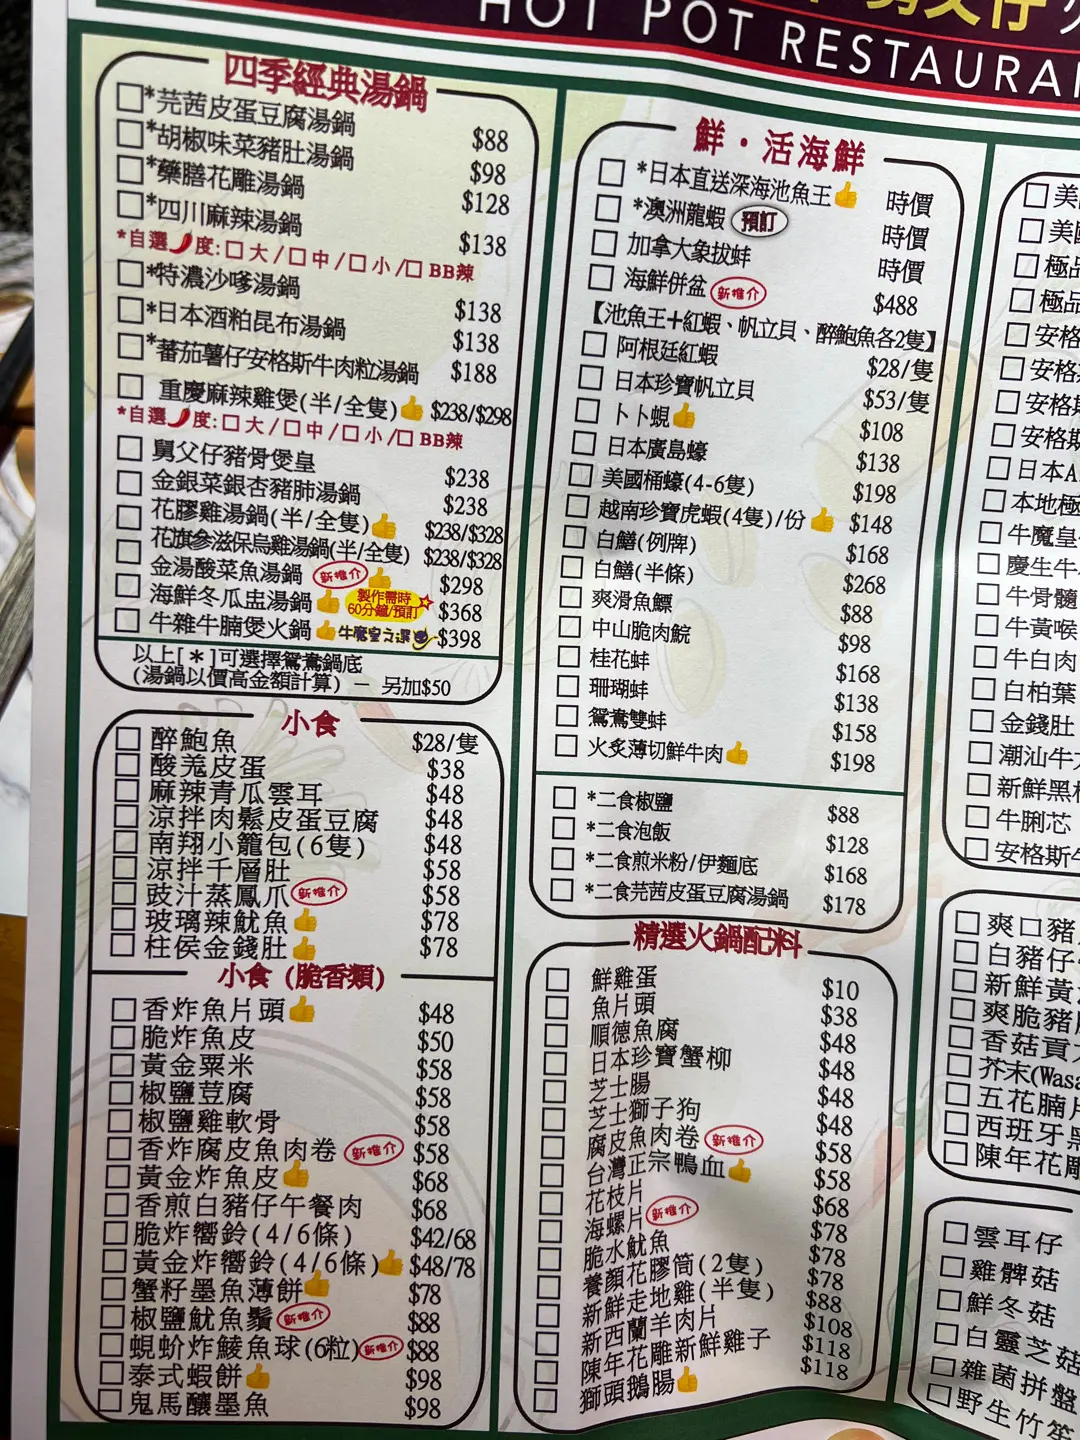 HOT POT RESTAURA
四季經典湯鍋
*芫茜皮蛋豆腐湯鍋 $88
*胡椒味菜豬肚湯鍋 $98
*藥膳花雕湯鍋 $128
*四川麻辣湯鍋 $138
*自選 度:□大/□中/□小/□BB辣
*特濃沙嗲湯鍋 $138
*日本酒粕昆布湯鍋 $138
*蕃茄薯仔安格斯牛肉粒湯鍋 $188
重慶麻辣雞煲(半/全隻) $238/$298
*自選 度:□大/□中/□小/□BB辣
舅父仔豬骨煲皇 $238
金銀菜銀杏豬肺湯鍋 $238
花膠雞湯鍋(半/全隻) $238/$328
花旗參滋保烏雞湯鍋(半/全隻) $238/$328
金湯酸菜魚湯鍋 新推介 $298
海鮮冬瓜盅湯鍋 製作需時 60分鐘/預訂 $368
牛雜牛腩煲火鍋 牛魔皇之選 $398
以上[*]可選擇鴛鴦鍋底
(湯鍋以價高金額計算) — 另加$50
小食
醉鮑魚 $28/隻
酸羗皮蛋 $38
麻辣青瓜雲耳 $48
涼拌肉鬆皮蛋豆腐 $48
南翔小籠包(6隻) $48
涼拌千層肚 $58
豉汁蒸鳳爪 新推介 $58
玻璃辣魷魚 $78
柱侯金錢肚 $78
小食(脆香類)
香炸魚片頭 $48
脆炸魚皮 $50
黃金粟米 $58
椒鹽荳腐 $58
椒鹽雞軟骨 $58
香炸腐皮魚肉卷 新推介 $58
黃金炸魚皮 $68
香煎白豬仔午餐肉 $68
脆炸嚮鈴(4/6條) $42/68
黃金炸嚮鈴(4/6條) $48/78
蟹籽墨魚薄餅 $78
椒鹽魷魚鬚 新推介 $88
蜆蚧炸鯪魚球(6粒) 新推介 $88
泰式蝦餅 $98
鬼馬釀墨魚 $98
鮮・活海鮮
*日本直送深海池魚王 時價
*澳洲龍蝦 預訂 時價
加拿大象拔蚌 時價
海鮮併盆 新推介 $488
【池魚王+紅蝦、帆立貝、醉鮑魚各2隻】
阿根廷紅蝦 $28/隻
日本珍寶帆立貝 $53/隻
卜卜蜆 $108
日本廣島蠔 $138
美國桶蠔(4-6隻) $198
越南珍寶虎蝦(4隻)/份 $148
白鱔(例牌) $168
白鱔(半條) $268
爽滑魚鰾 $88
中山脆肉鯇 $98
桂花蚌 $168
珊瑚蚌 $138
鴛鴦雙蚌 $158
火炙薄切鮮牛肉 $198
*二食椒鹽 $88
*二食泡飯 $128
*二食煎米粉/伊麵底 $168
*二食芫茜皮蛋豆腐湯鍋 $178
精選火鍋配料
鮮雞蛋 $10
魚片頭 $38
順德魚腐 $48
日本珍寶蟹柳 $48
芝士腸 $48
芝士獅子狗 $48
腐皮魚肉卷 新推介 $58
台灣正宗鴨血 $58
花枝片 $68
海螺片 新推介 $78
脆水魷魚 $78
養顏花膠筒(2隻) $78
新鮮走地雞(半隻) $88
新西蘭羊肉片 $108
陳年花雕新鮮雞子 $118
獅頭鵝腸 $118
美
美國
極品
極品
安格
安格
安格
安格斯
日本A
本地極
牛魔皇
慶生牛
牛骨髓
牛黃喉
牛白肉
白柏葉
金錢肚
潮汕牛
新鮮黑
牛脷芯
安格斯牛
爽口豬
白豬仔
新鮮黃
爽脆豬
香菇貢
芥末(Wasa
五花腩片
西班牙黑
陳年花雕
雲耳仔
雞髀菇
鮮冬菇
白靈芝菇
雜菌拼盤
野生竹笙